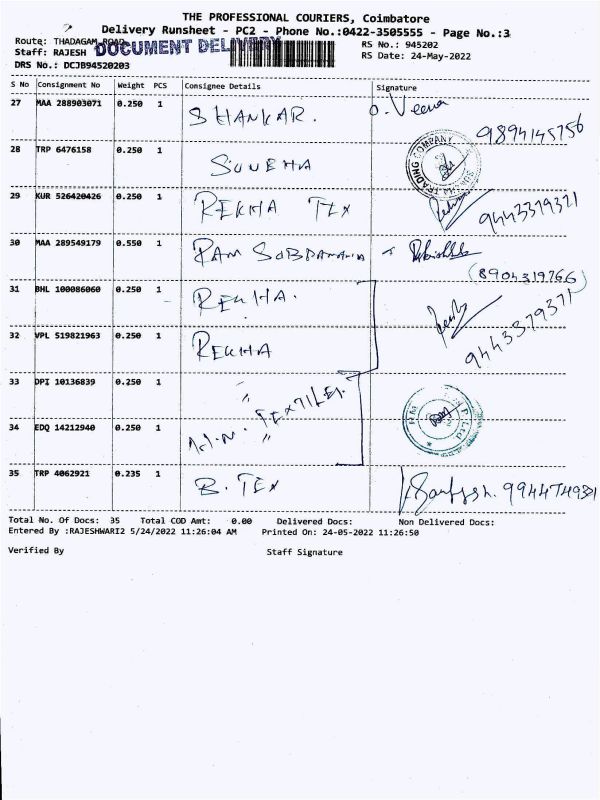 THE PROFESSIONAL COURIERS, Coimbatore
Delivery Runsheet - PC2 - Phone No.:0422-3505555 - Page No.:3
Route: THADAGAM ROAD
DOCUMENT DELIVERY
RS No.: 945202
Staff: RAJESH
RS Date: 24-May-2022
DRS No.: DCJB94520203
S No Consignment No Weight PCS Consignee Details Signature
27 MAA 288903071 0.250 1 SHANKAR. O. Veena
9894145756
28 TRP 6476158 0.250 1 SUNEHA
TRADING COMPANY
29 KUR 526420426 0.250 1 REKHA TEX 9443379371
30 MAA 289549179 0.550 1 RAM
(8904319766)
31 BHL 100086060 0.250 1 REKHA.
9443379371
32 VPL 519821963 0.250 1 REKHA
33 DPI 10136839 0.250 1 "
TEXTILES.
34 EDQ 14212940 0.250 1 "
35 TRP 4062921 0.235 1 B. TEX 9944749321
Total No. Of Docs: 35 Total COD Amt: 0.00 Delivered Docs: Non Delivered Docs:
Entered By :RAJESHWARI2 5/24/2022 11:26:04 AM Printed On: 24-05-2022 11:26:50
Verified By Staff Signature